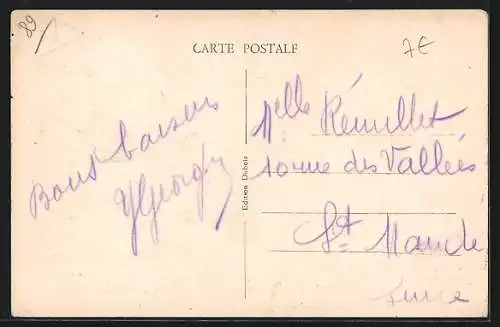 89
CARTE POSTALE
7€
Bons baisers
Edition Dubois
Mlle Rémillet
10 rue des Vallées
St. Mandé
Seine